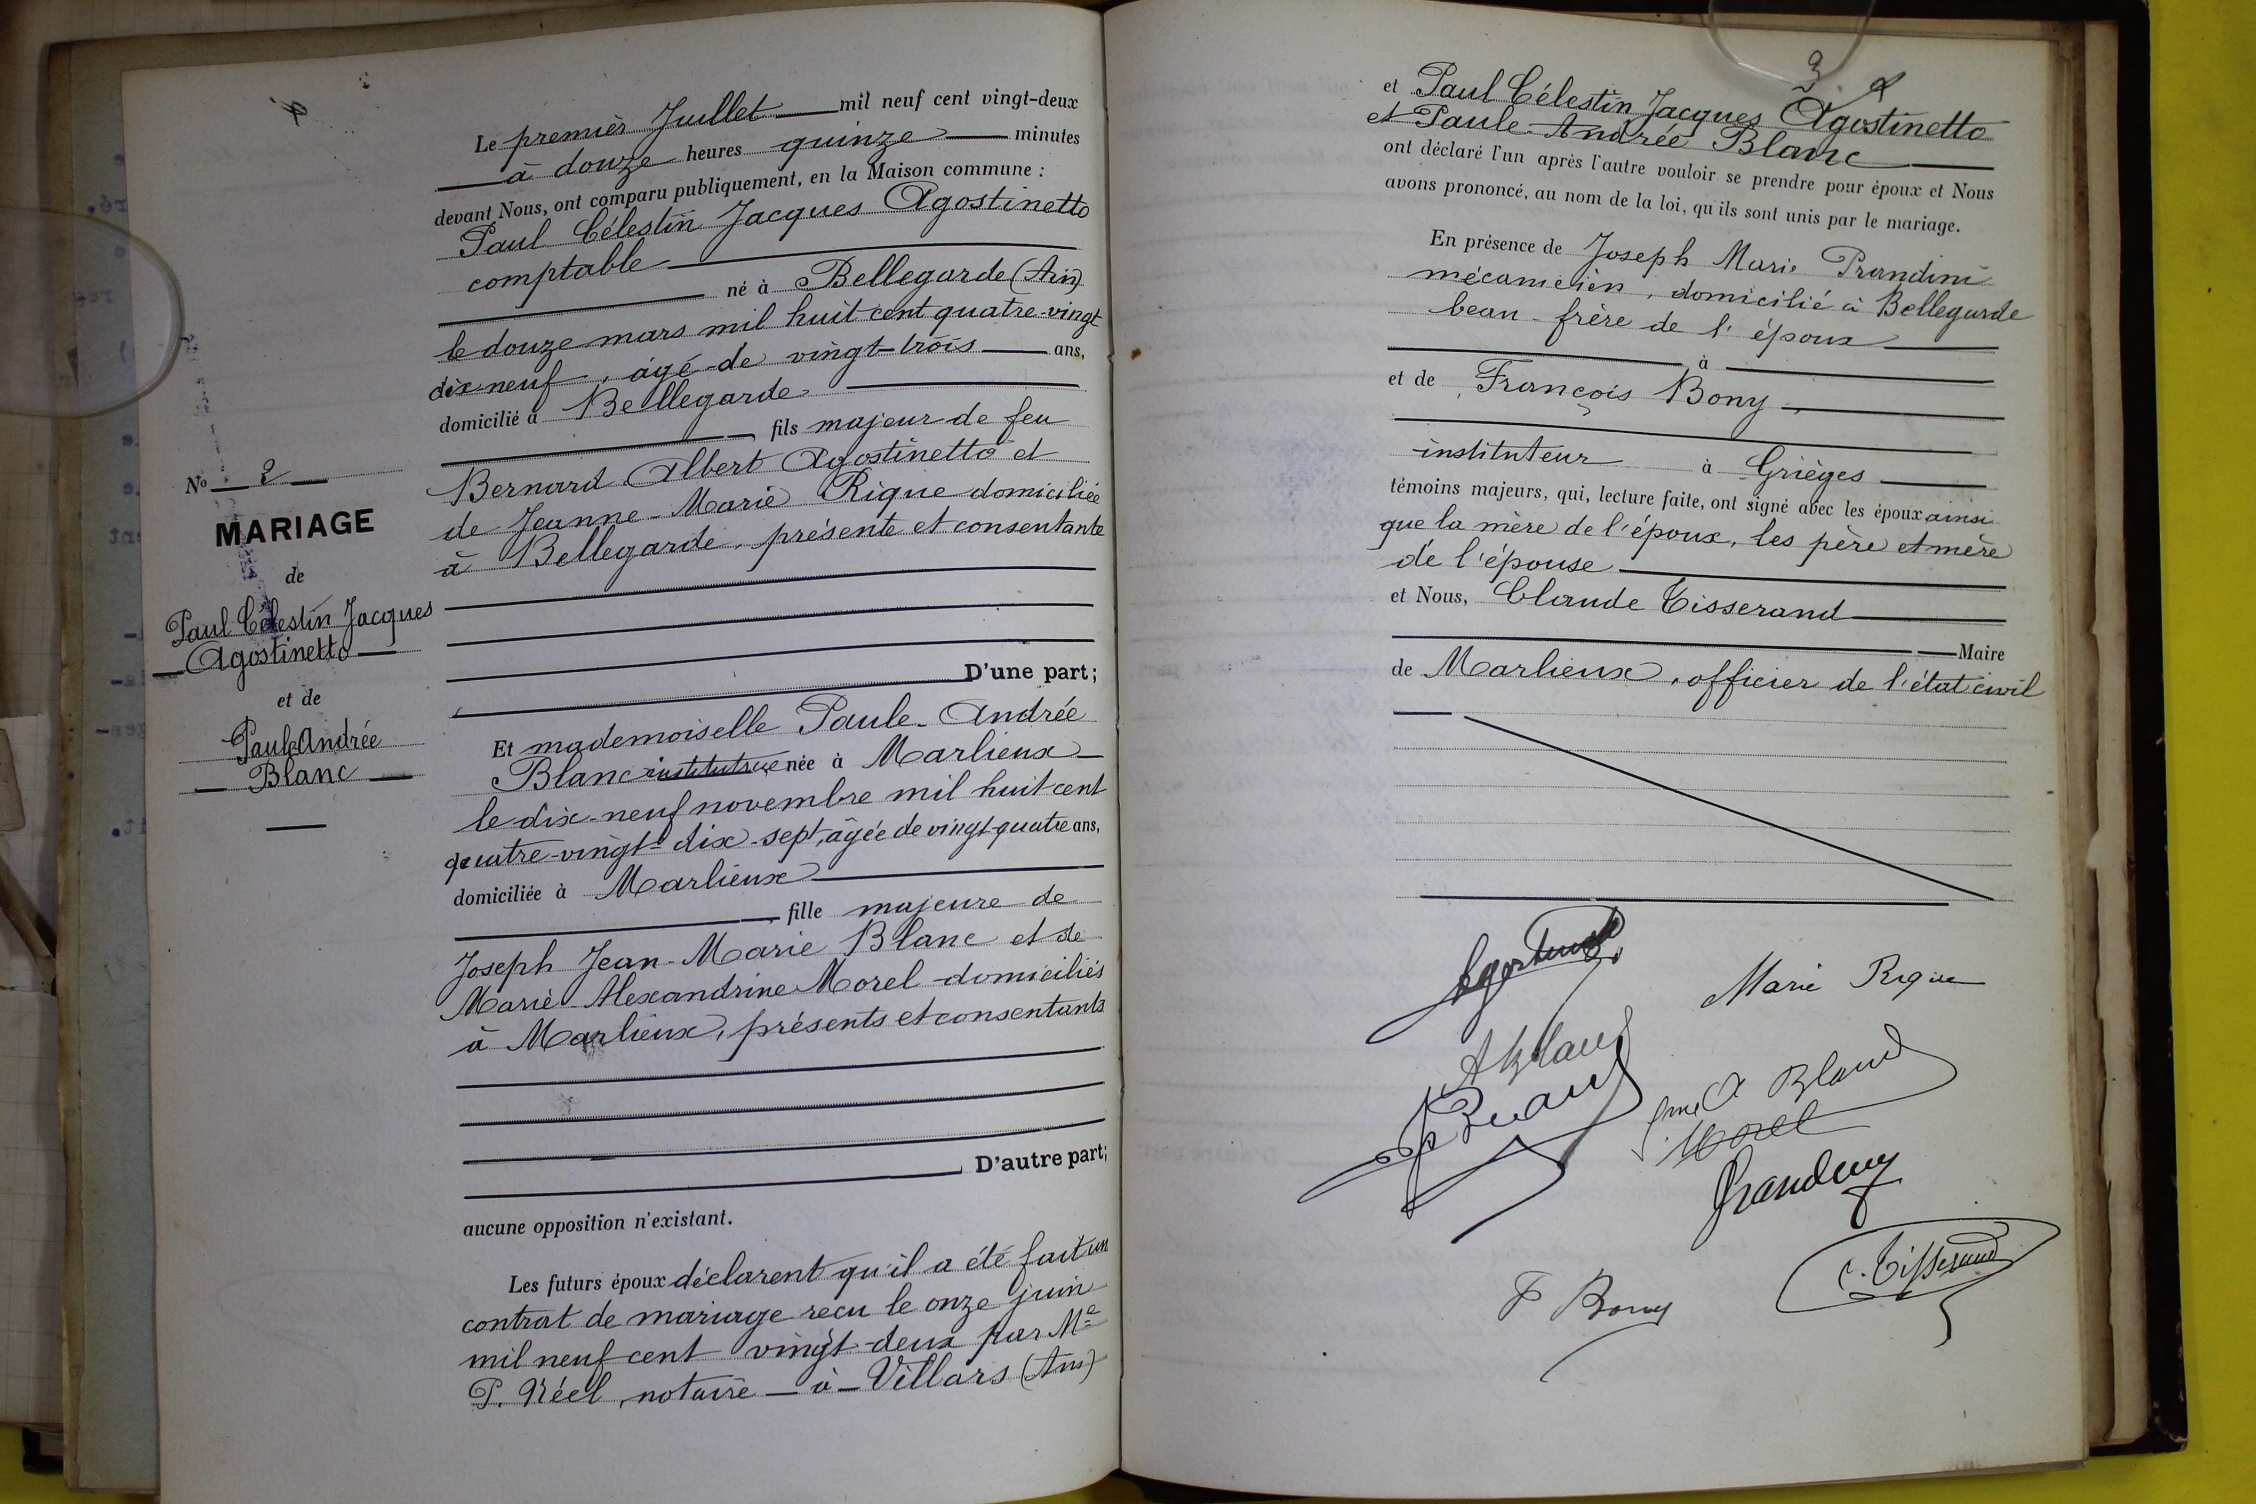 Nº 2
MARIAGE
de
Paul Célestin Jacques
Agostinetto
et de
Paule Andrée
Blanc
Le premier Juillet mil neuf cent vingt-deux
à douze heures quinze minutes
devant Nous, ont comparu publiquement, en la Maison commune :
Paul Célestin Jacques Agostinetto
comptable
né à Bellegarde (Ain)
le douze mars mil huit cent quatre-vingt
dix-neuf, âgé de vingt-trois ans,
domicilié à Bellegarde
fils majeur de feu
Bernard Albert Agostinetto et
de Jeanne-Marie Rique domiciliée
à Bellegarde, présente et consentante
D'une part;
Et mademoiselle Paule-Andrée
Blanc institutrice née à Marlieux
le dix-neuf novembre mil huit cent
quatre-vingt-dix-sept, âgée de vingt-quatre ans,
domiciliée à Marlieux
fille majeure de
Joseph Jean-Marie Blanc et de
Marie-Alexandrine Morel domiciliés
à Marlieux, présents et consentants
D'autre part;
aucune opposition n'existant.
Les futurs époux déclarent qu'il a été fait un
contrat de mariage reçu le onze juin
mil neuf cent vingt-deux par Me
P. Réel, notaire à Villars (Ain)
3
et Paul Célestin Jacques Agostinetto
et Paule-Andrée Blanc
ont déclaré l'un après l'autre vouloir se prendre pour époux et Nous
avons prononcé, au nom de la loi, qu'ils sont unis par le mariage.
En présence de Joseph Marie Prandini
mécanicien, domicilié à Bellegarde
beau-frère de l'époux
à
et de François Bony,
instituteur à Grièges
témoins majeurs, qui, lecture faite, ont signé avec les époux ainsi
que la mère de l'époux, les père et mère
de l'épouse
et Nous, Claude Tisserand
Maire
de Marlieux, officier de l'état civil
Marie Rique
A Blanc
J Blanc
A Blanc
Morel
F Bony
C. Tisserand